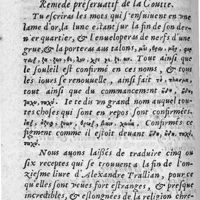 Remede preseruatif de la Goutte.
Tu escriras les mots qui s'ensuiuent en vne
lame d'or, la lune estant sur la fin de son der-
nier quartier, & l'enueloperas de nerfs d'vne
grue, & la porteras aux talons,
Tout ainsi que
le souleil est confirmé en ces noms, & tous
les iours se renouuelle, ainsi fait
tout ainsi que du commancement
Ie te dis vn grand nom auquel tou-
tes choses qui sont en repos sont confirmées.
Confirmés ce
figmene comme il estoit deuant
Nous auons laissés de traduire cinq ou
six receptes qui se trouuent a la fin de l'on-
ziesme liure d'Alexandre Trallian, pour ce
qu'elles sont veües fort estranges, & presque
incredibles, & eslongnées de la religion chre-